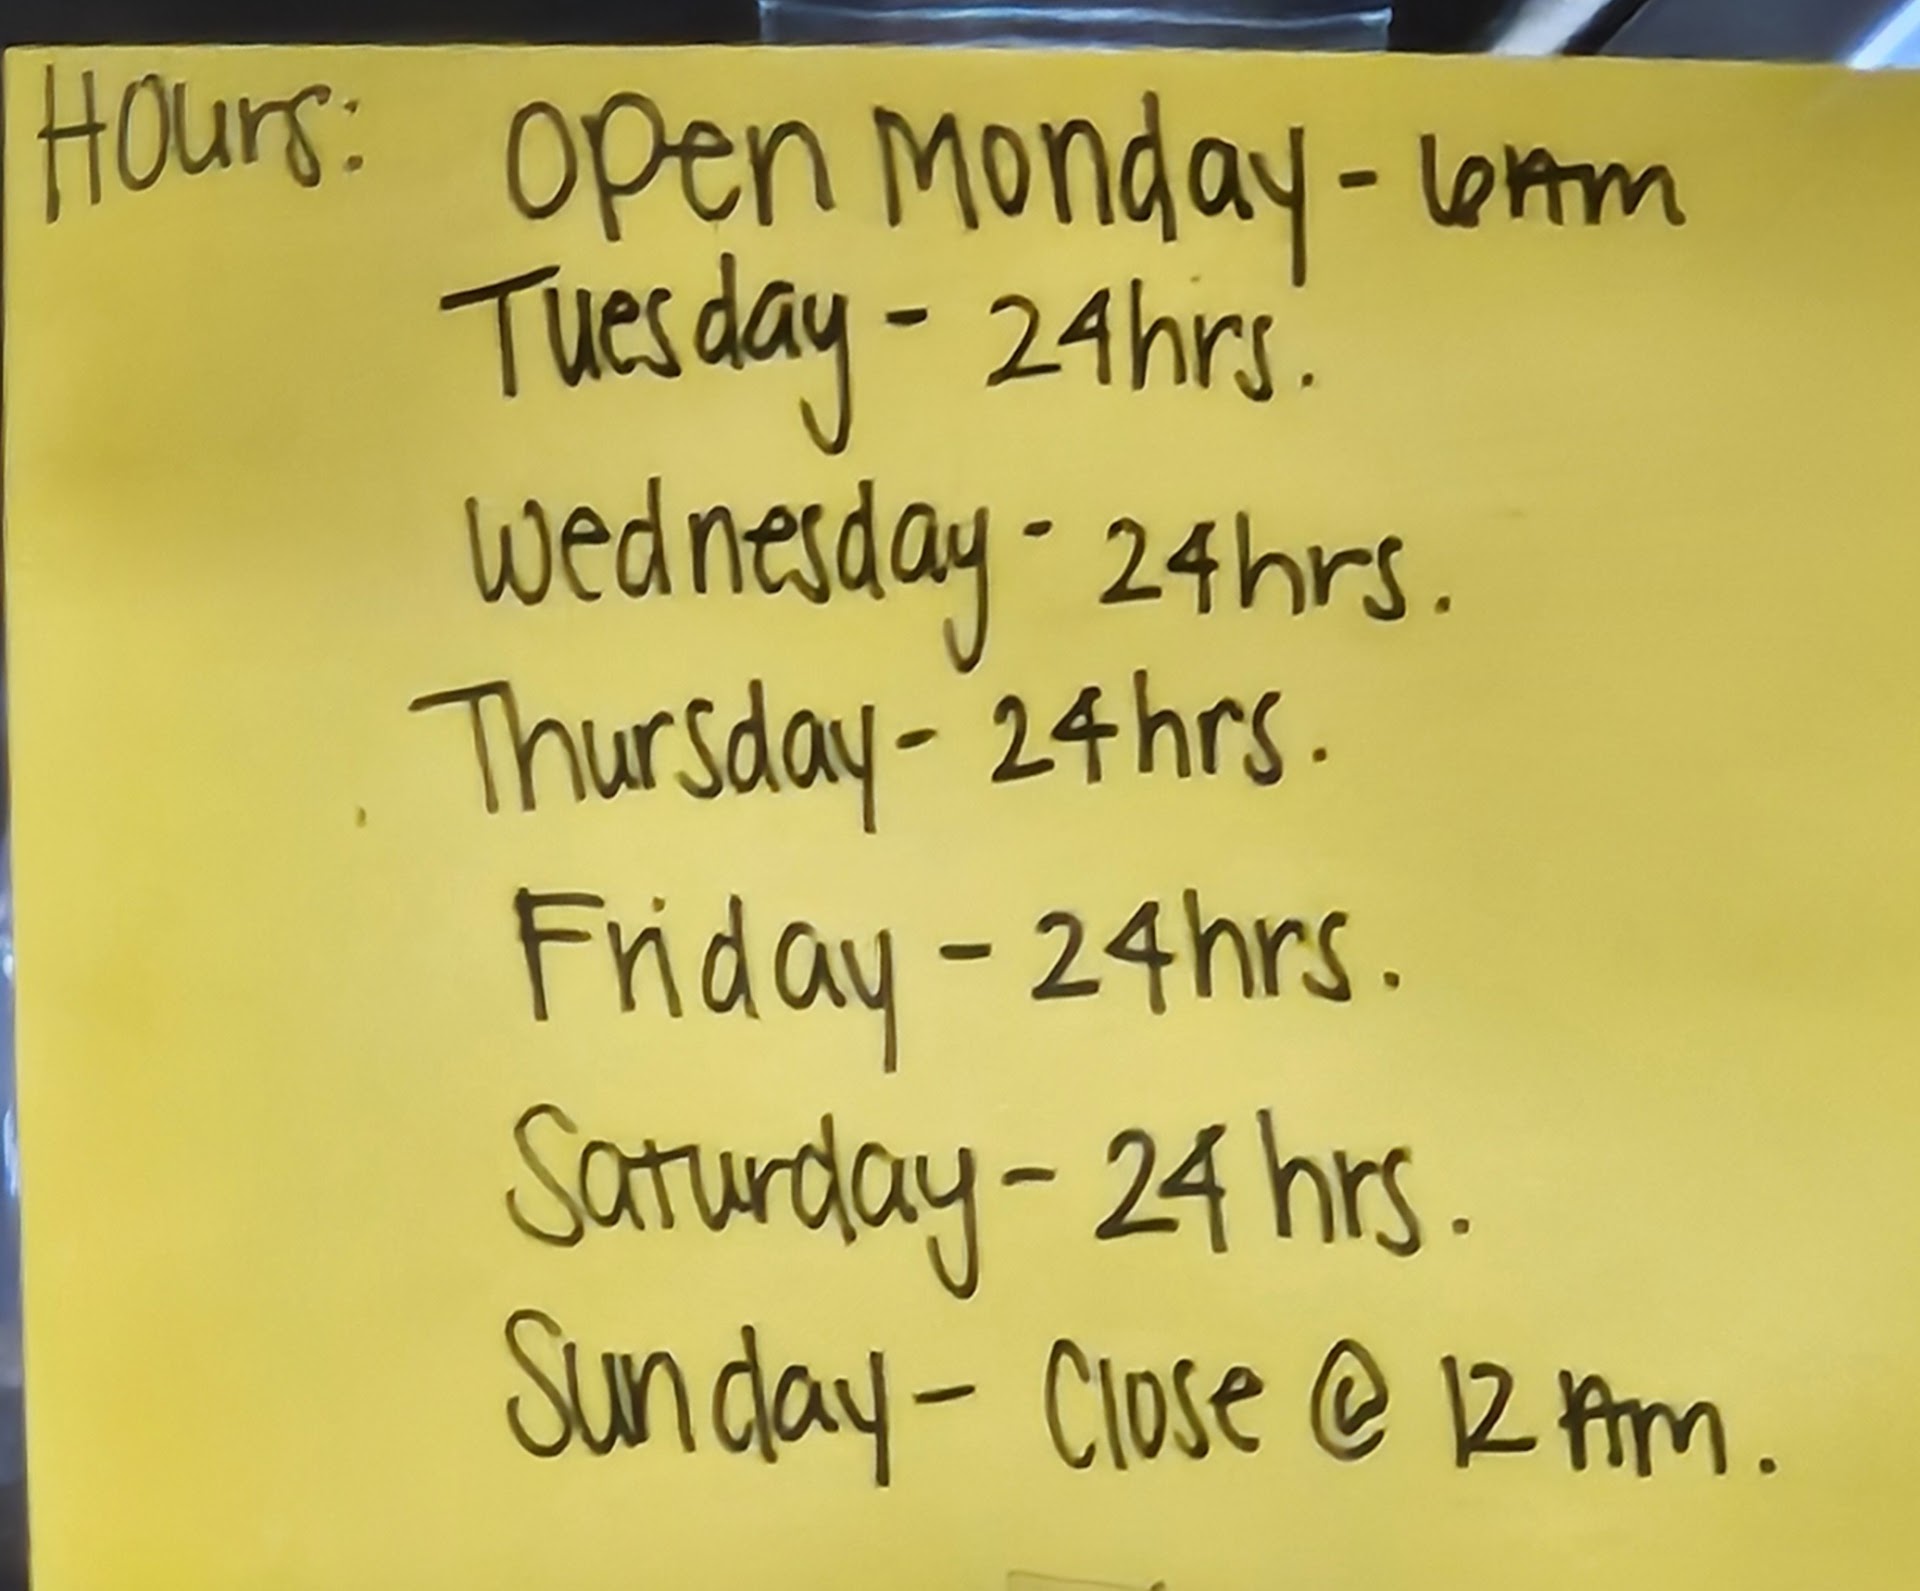 Hours: Open Monday - 6AM
Tuesday - 24hrs.
Wednesday - 24hrs.
Thursday - 24hrs.
Friday - 24hrs.
Saturday - 24 hrs.
Sunday - Close @ 12 AM.